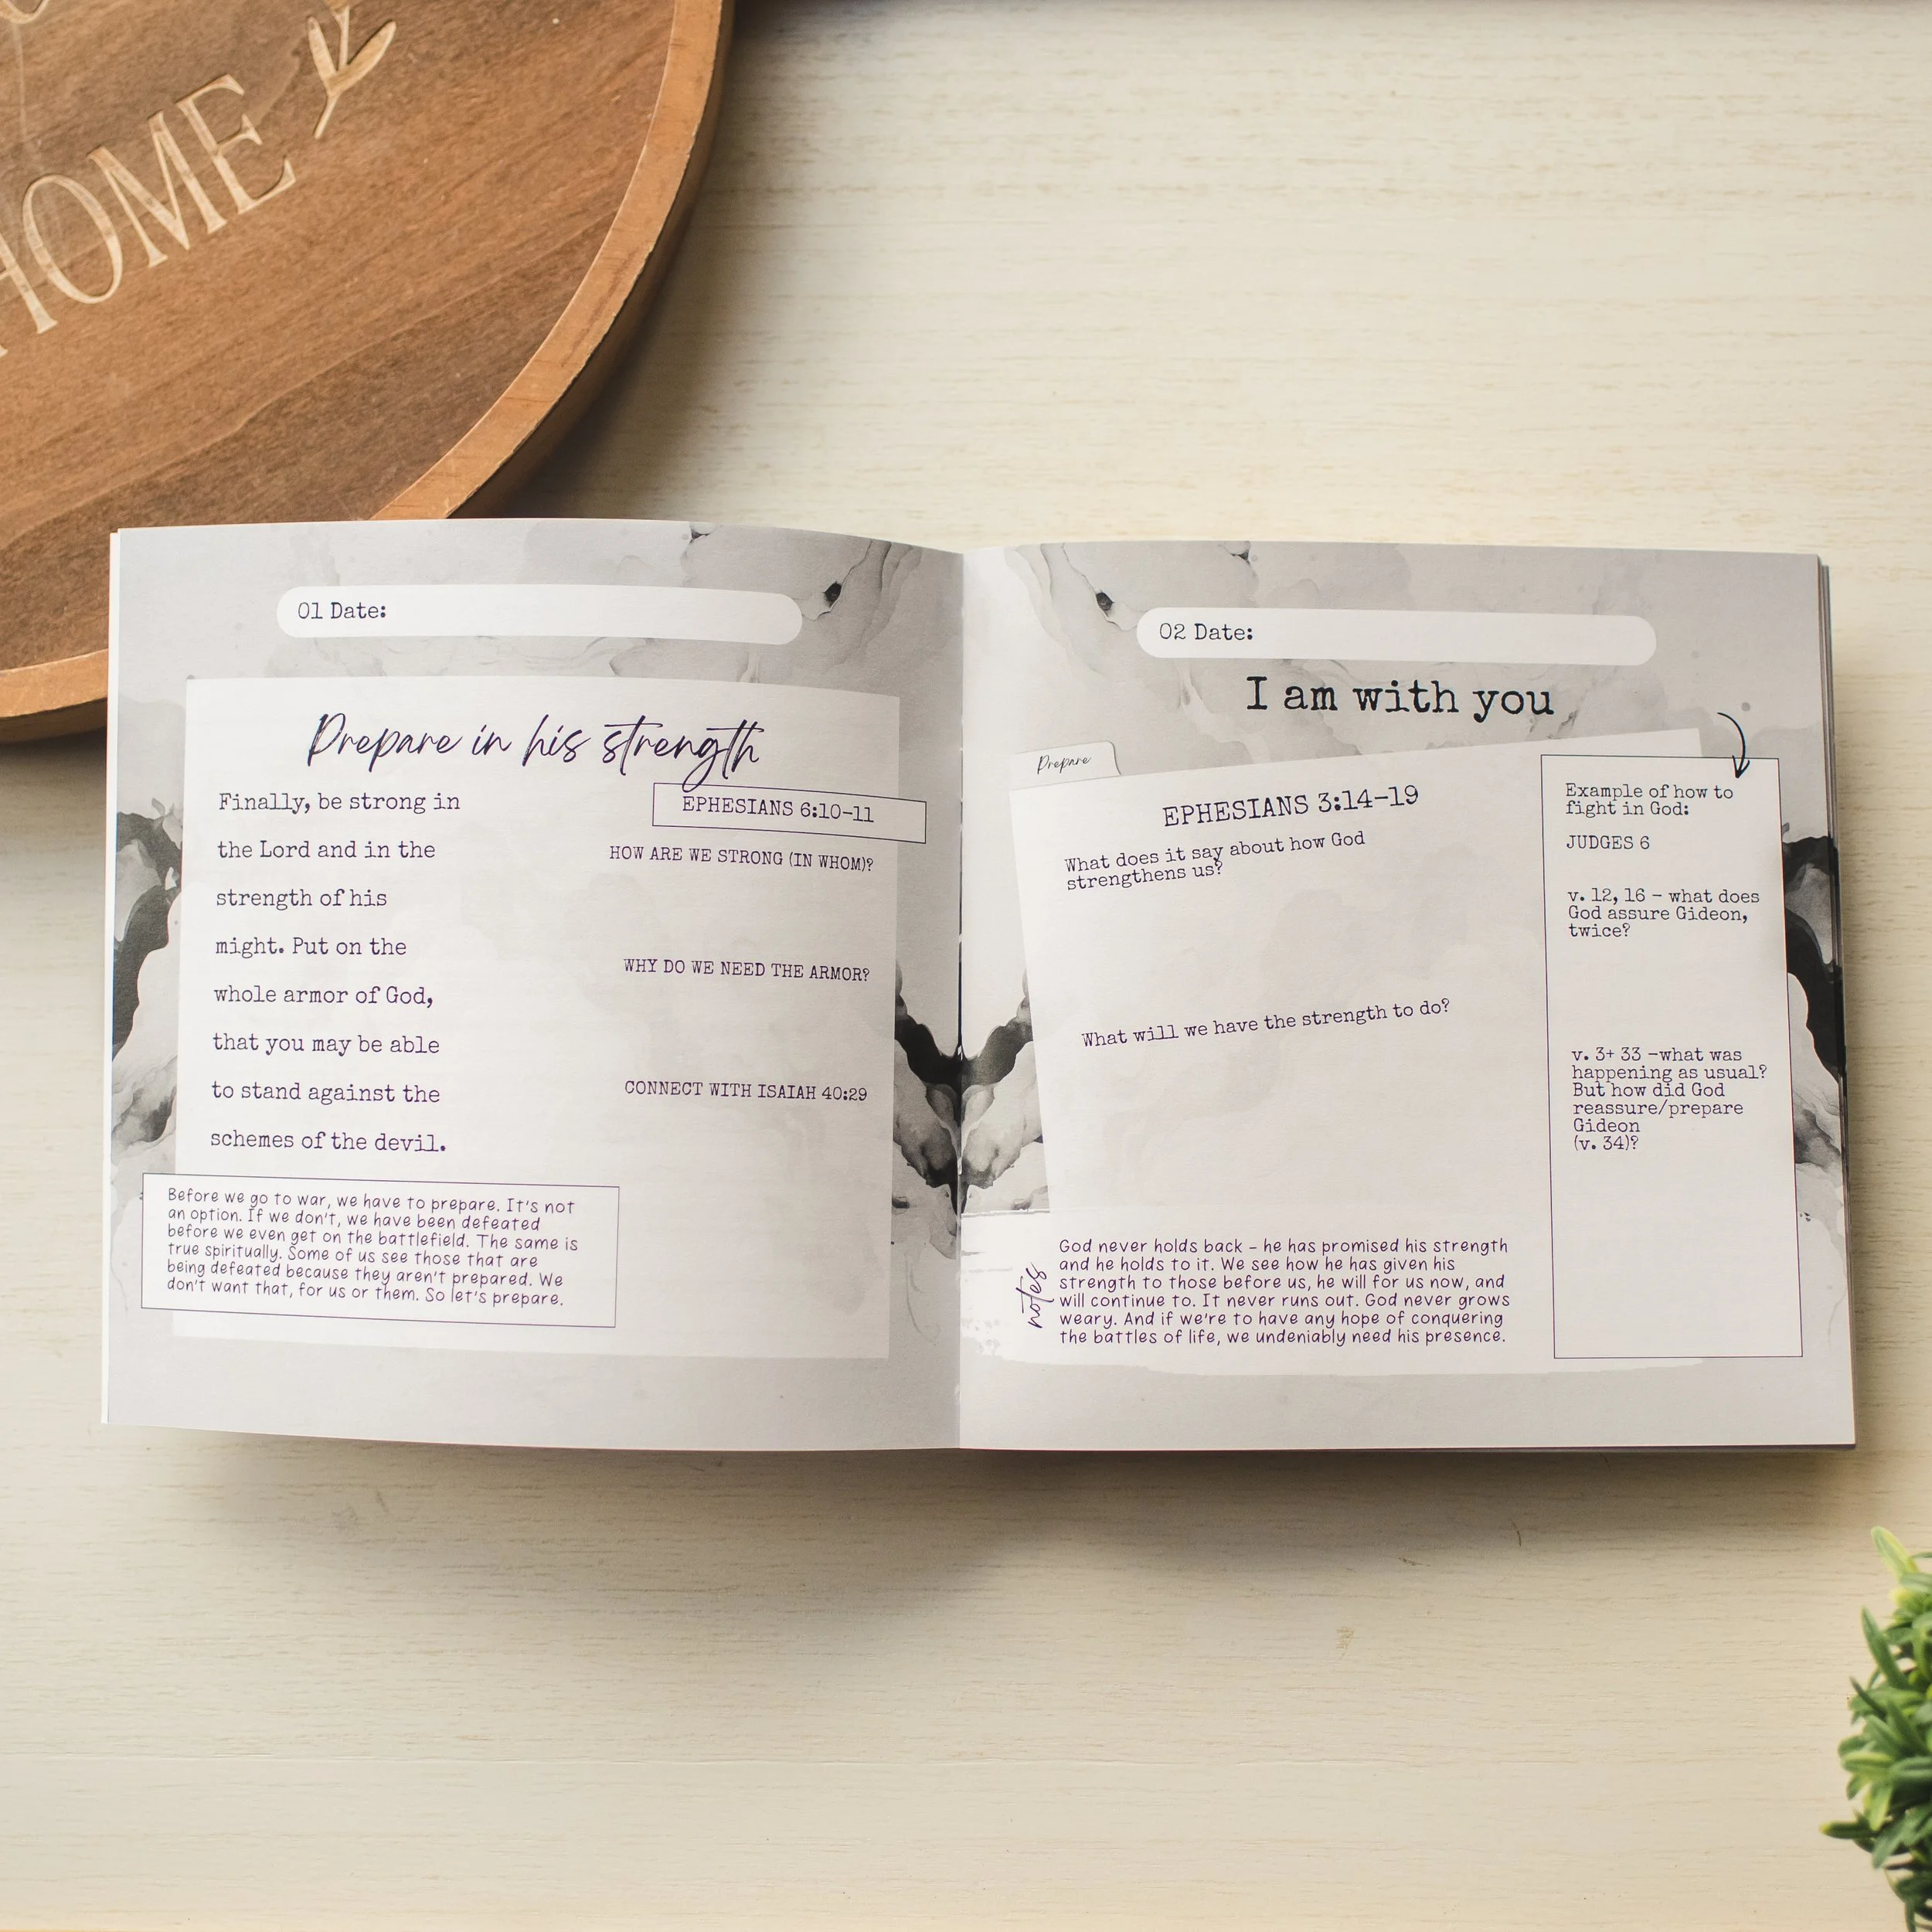 HOME
01 Date:
Prepare in his strength
EPHESIANS 6:10-11
Finally, be strong in
the Lord and in the
strength of his
might. Put on the
whole armor of God,
that you may be able
to stand against the
schemes of the devil.
HOW ARE WE STRONG (IN WHOM)?
WHY DO WE NEED THE ARMOR?
CONNECT WITH ISAIAH 40:29
Before we go to war, we have to prepare. It's not
an option. If we don't, we have been defeated
before we even get on the battlefield. The same is
true spiritually. Some of us see those that are
being defeated because they aren't prepared. We
don't want that, for us or them. So let's prepare.
02 Date:
I am with you
Prepare
EPHESIANS 3:14-19
What does it say about how God
strengthens us?
What will we have the strength to do?
notes
God never holds back - he has promised his strength
and he holds to it. We see how he has given his
strength to those before us, he will for us now, and
will continue to. It never runs out. God never grows
weary. And if we're to have any hope of conquering
the battles of life, we undeniably need his presence.
Example of how to
fight in God:
JUDGES 6
v. 12, 16 - what does
God assure Gideon,
twice?
v. 3+ 33 -what was
happening as usual?
But how did God
reassure/prepare
Gideon
(v. 34)?